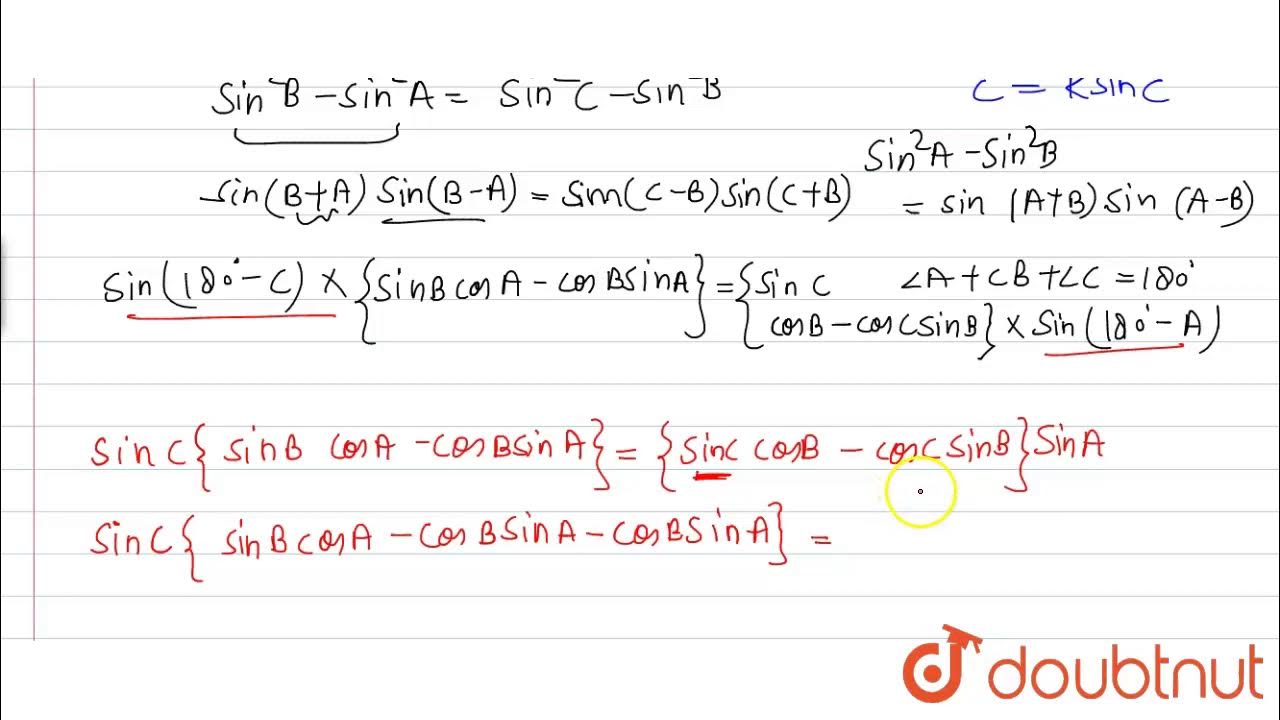 Sin²B - Sin²A = Sin²C - Sin²B
C = KSinC
Sin²A - Sin²B
= Sin (A+B) Sin (A-B)
Sin(B+A) Sin(B-A) = Sin(C-B) Sin(C+B)
Sin(180° - C) × {SinB cosA - cosB SinA} = {Sin C
cosB - cosC SinB} × Sin(180° - A)
∠A + ∠B + ∠C = 180°
Sin C { SinB cosA - cosB Sin A} = {Sinc cosB - cosC SinB} SinA
Sin C { SinB cosA - cosB SinA - cosB SinA} =
doubtnut